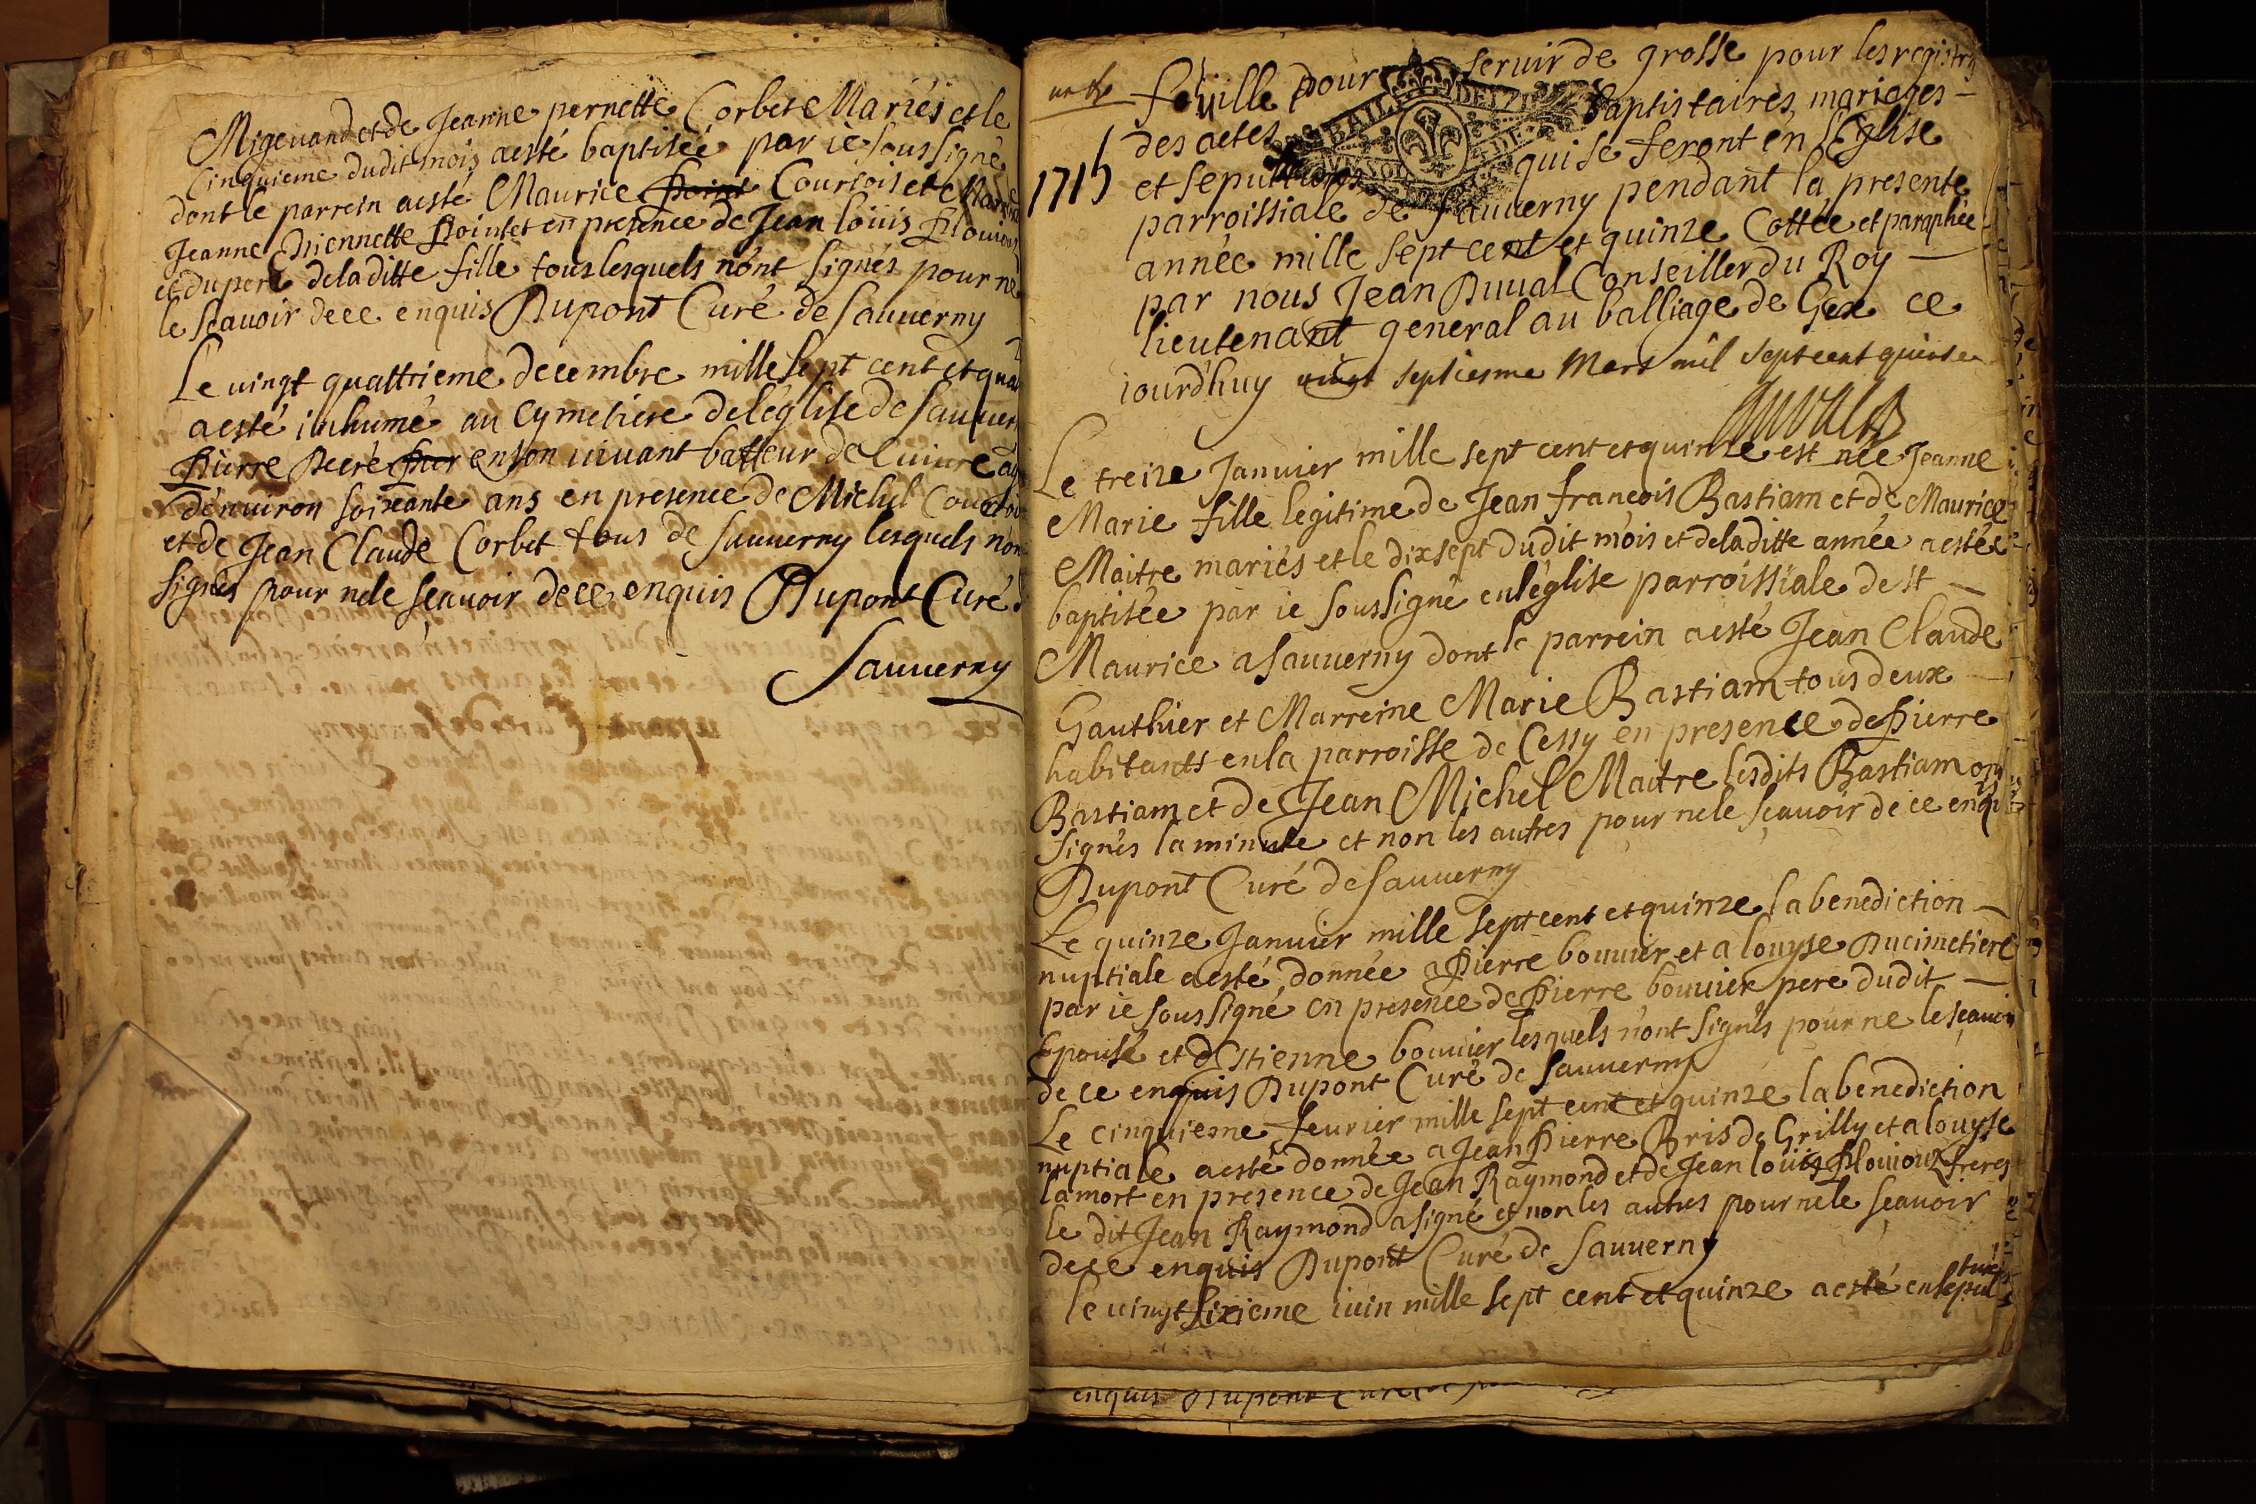 Migevand et de Jeanne pernette Corbet Mariés et le
Cinquieme dudit mois a esté baptisée par ie soussigné
dont le parrein a esté Maurice Courtois et
Jeanne Poinset en presence de Jean loüis
et du pere de la ditte fille tous lesquels n'ont signés pour ne
le scavoir de ce enquis Dupont Curé de Sauuerny
Le uingt quattrieme decembre mille sept cent et
a esté inhumé au Cymetiere de l'eglise de
Pierre Decré en son uiuant batteur de Cuiure
d'enuiron soixante ans en presence de Michel
et de Jean Claude Corbet tous de Sauuerny lesquels
signés pour ne le sçauoir de ce enquis Dupont Curé
Sauuerny
1715
feüille pour seruir de grosse pour les
des actes Baptistaires, mariages
BAIL DE
et sepultures qui se feront en l'Eglise
parroissiale de Sauuerny pendant la presente
année mille sept cent et quinze Cottée et paraphée
par nous Jean Duual Conseiller du Roy
lieutenant general au balliage de Gex ce
iourd'huy vingt septiesme Mars mil sept cent quinze
Duual
Le treize Januier mille sept cent et quinze est née Jeanne
Marie fille legitime de Jean françois Bastiam et de Maurice
Maitre mariés et le dix sept dudit mois et de la ditte année a estée
baptisée par ie soussigné en l'église parroissiale de st
Maurice a Sauuerny dont le parrein a esté Jean Claude
Gauthier et Marreine Marie Bastiam tous deux
habitants en la parroisse de Cessy en presence de Pierre
Bastiam et de Jean Michel Maitre lesdits Bastiam ont
signés la minute et non les autres pour ne le sçauoir de ce
Dupont Curé de Sauuerny
Le quinze Januier mille sept cent et quinze la benediction
nuptiale a esté donnée a Pierre bouuier et a louyse Ducimetiere
par ie soussigné en presence de Pierre bouuier pere dudit
Epousé et d'Estienne bouuier lesquels n'ont signés pour ne le sçauoir
de ce enquis Dupont Curé de Sauuerny
Le cinquieme feurier mille sept cent et quinze la benediction
nuptiale a esté donnée a Jean Pierre Bris de Grilly et a louyse
lamort en presence de Jean Raymond et de Jean loüis Plouioux freres
le dit Jean Raymond a signé et non les autres pour ne le sçauoir
de ce enquis Dupont Curé de Sauuerny
le uingt sixieme iuin mille sept cent et quinze a esté ensepul
enquis Dupont Curé de